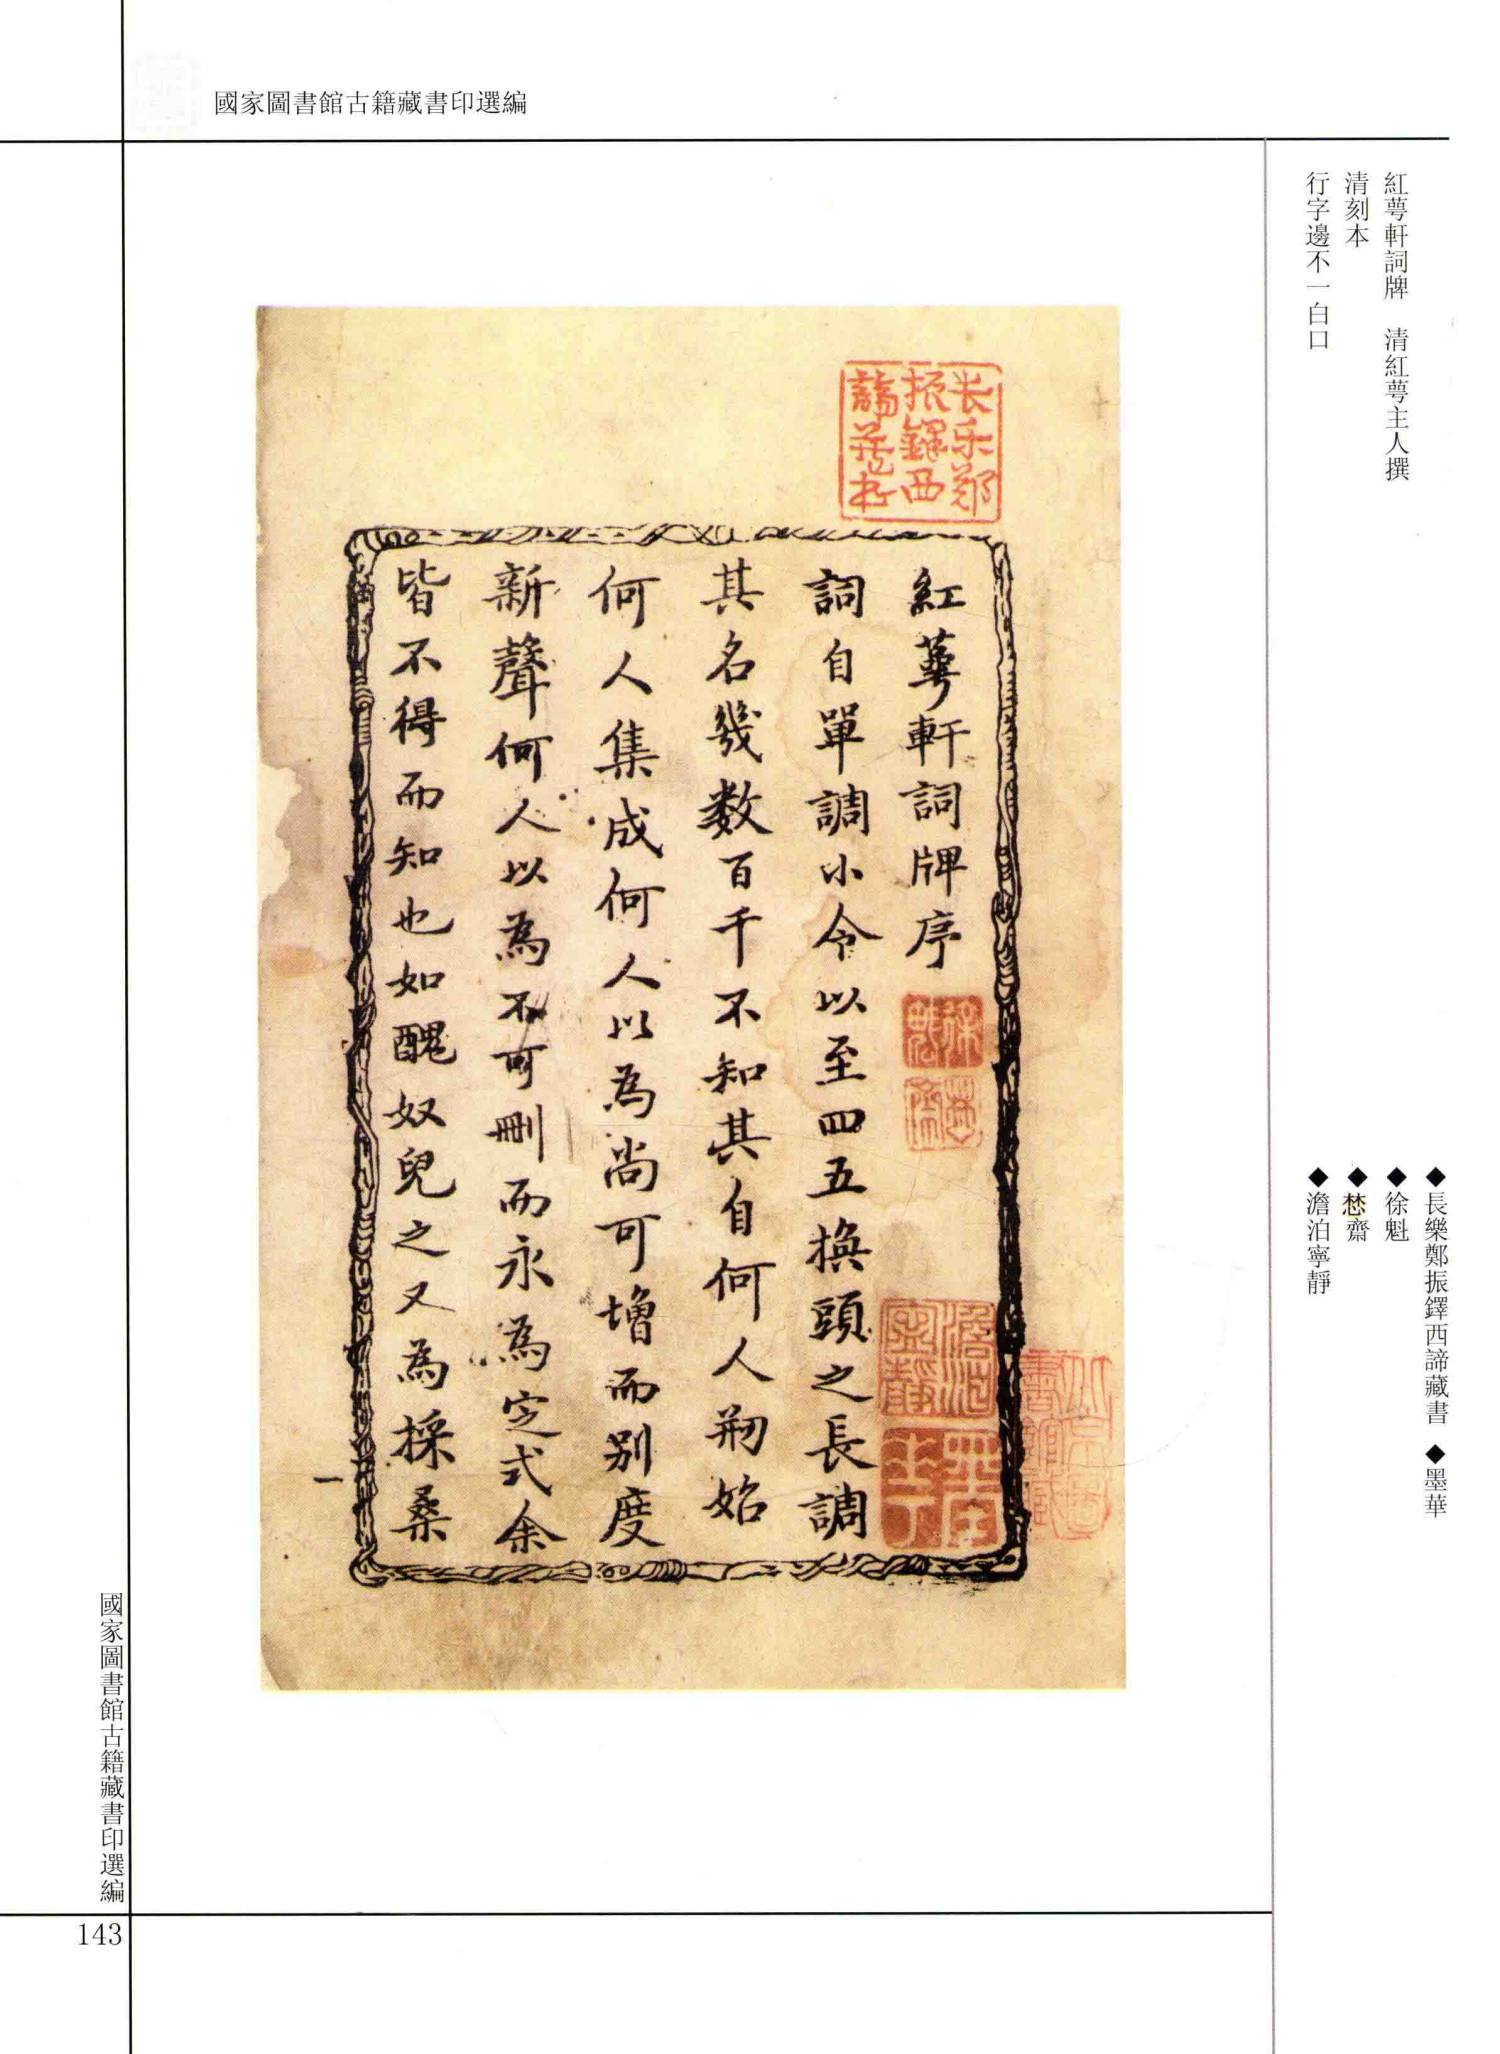 國家圖書館古籍藏書印選編
紅萼軒詞牌　清紅萼主人撰
清刻本
行字邊不一白口
◆長樂鄭振鐸西諦藏書 ◆墨華
◆徐魁
◆慭齋
◆澹泊寧靜
长乐鄭
振鐸西
諦藏書
紅萼軒詞牌序
徐魁
澹泊
寧靜
詞自單調小令以至四五換頭之長調
其名幾数百千不知其自何人刱始
何人集成何人以為尚可增而别度
新聲何人以為不可刪而永為定式余
皆不得而知也如醜奴兒之又為採桑
一
北京圖
書館藏
國家圖書館古籍藏書印選編
143